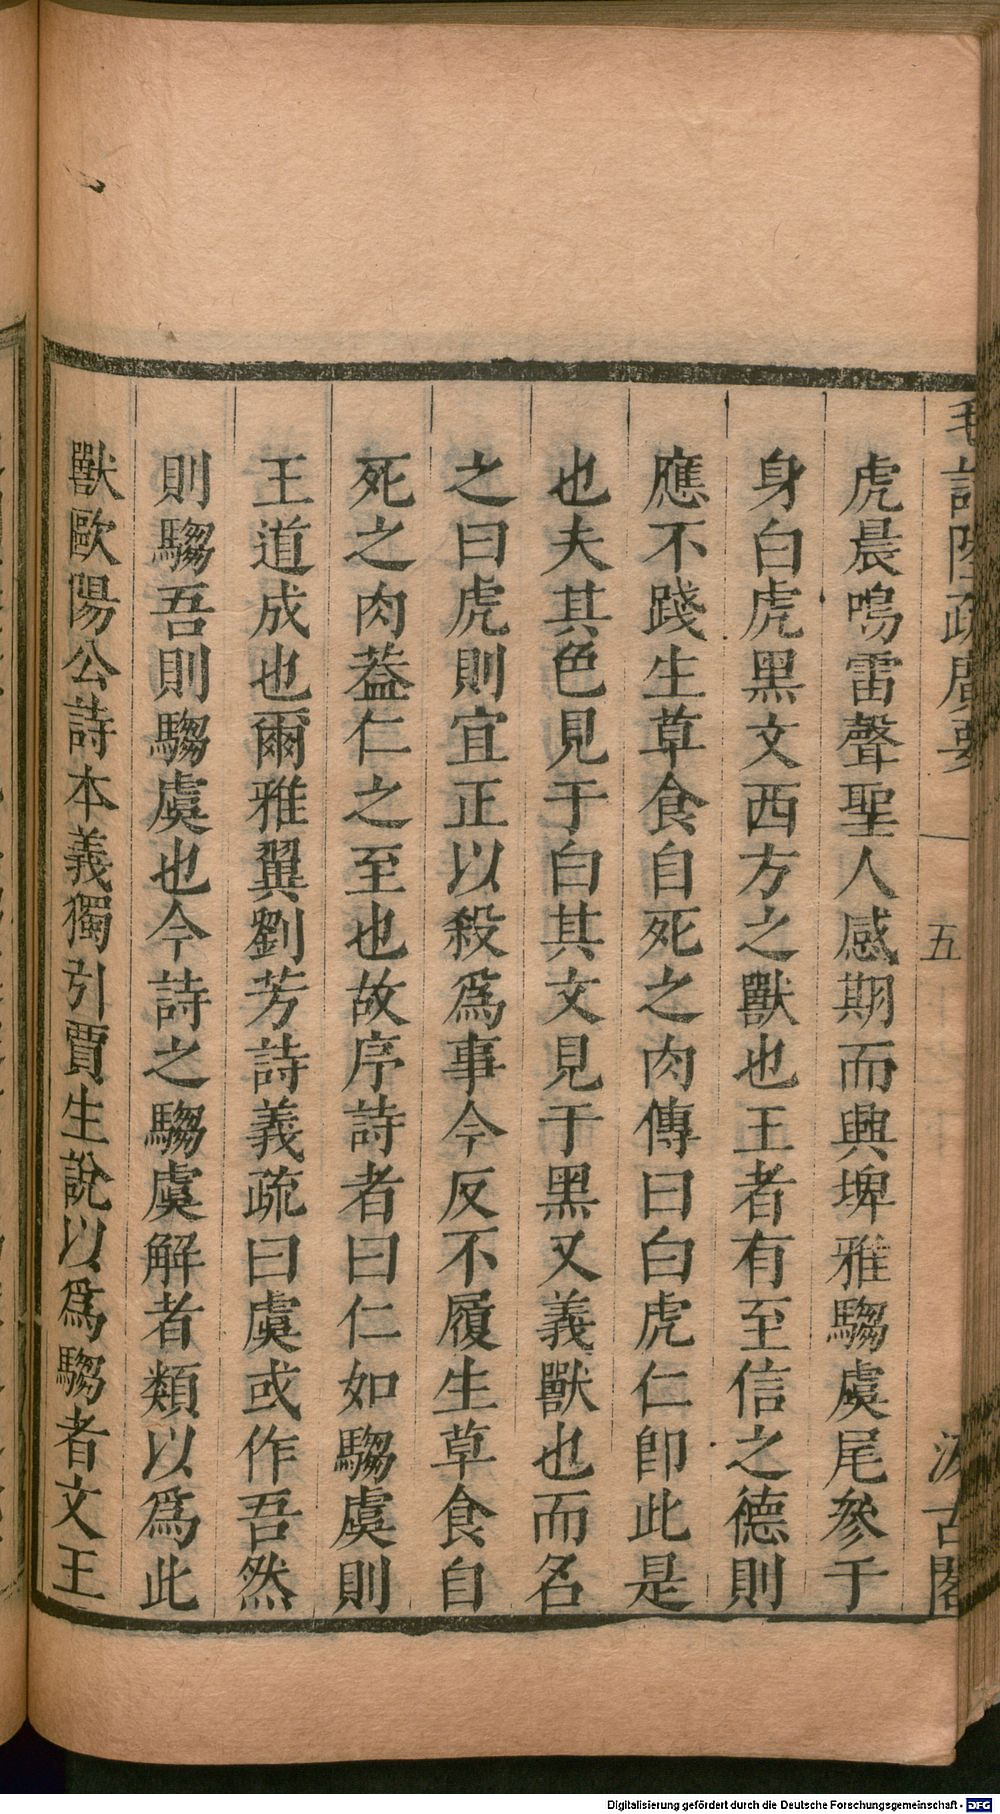 毛詩陸疏廣要
五
汲古閣
虎晨鳴雷聲聖人感期而興埤雅騶虞尾參于
身白虎黑文西方之獸也王者有至信之德則
應不踐生草食自死之肉傳曰白虎仁卽此是
也夫其色見于白其文見于黑又義獸也而名
之曰虎則宜正以殺爲事今反不履生草食自
死之肉葢仁之至也故序詩者曰仁如騶虞則
王道成也爾雅翼劉芳詩義疏曰虞或作吾然
則騶吾則騶虞也今詩之騶虞解者類以爲此
獸歐陽公詩本義獨引賈生說以爲騶者文王
Digitalisierung gefördert durch die Deutsche Forschungsgemeinschaft - DFG